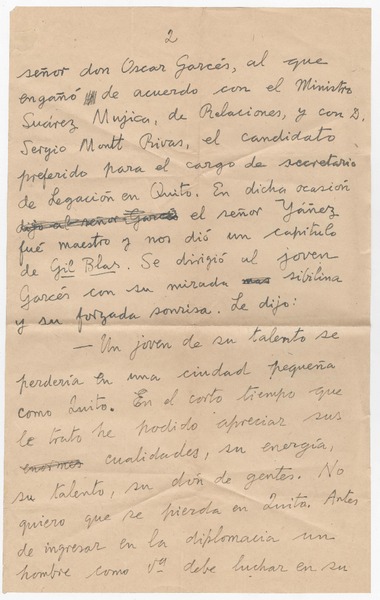 2
señor don Oscar Garcés, al que
engañó de acuerdo con el Ministro
Suárez Mujica, de Relaciones, y con D.
Sergio Montt Rivas, el candidato
preferido para el cargo de secretario
de Legación en Quito. En dicha ocasión
dijo al señor Garcés el señor Yáñez
fué maestro y nos dió un capítulo
de Gil Blas. Se dirigió al joven
Garcés con su mirada mas sibilina
y su forzada sonrisa. Le dijo:
— Un joven de su talento se
perdería en una ciudad pequeña
como Quito. En el corto tiempo que
le trato he podido apreciar sus
enormes cualidades, su energía,
su talento, su dón de gentes. No
quiero que se pierda en Quito. Antes
de ingresar en la diplomacia un
hombre como Vd debe luchar en su